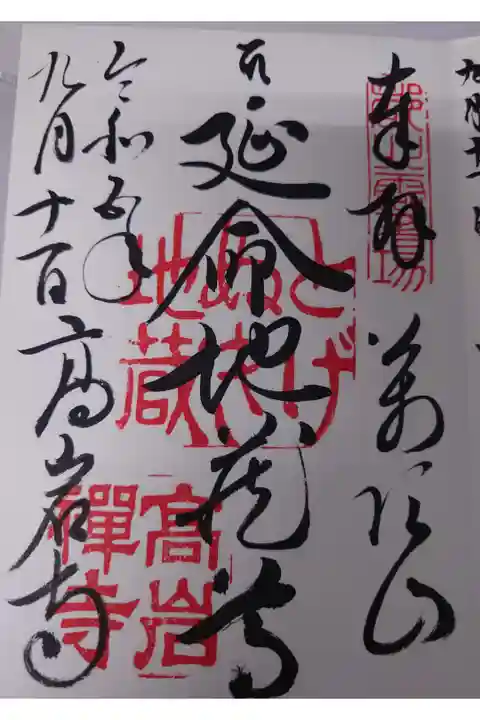 奉拝
萬頂山
延命地蔵尊
とげぬき
地蔵
高岩
禪寺
令和五年
九月十一日
高岩寺